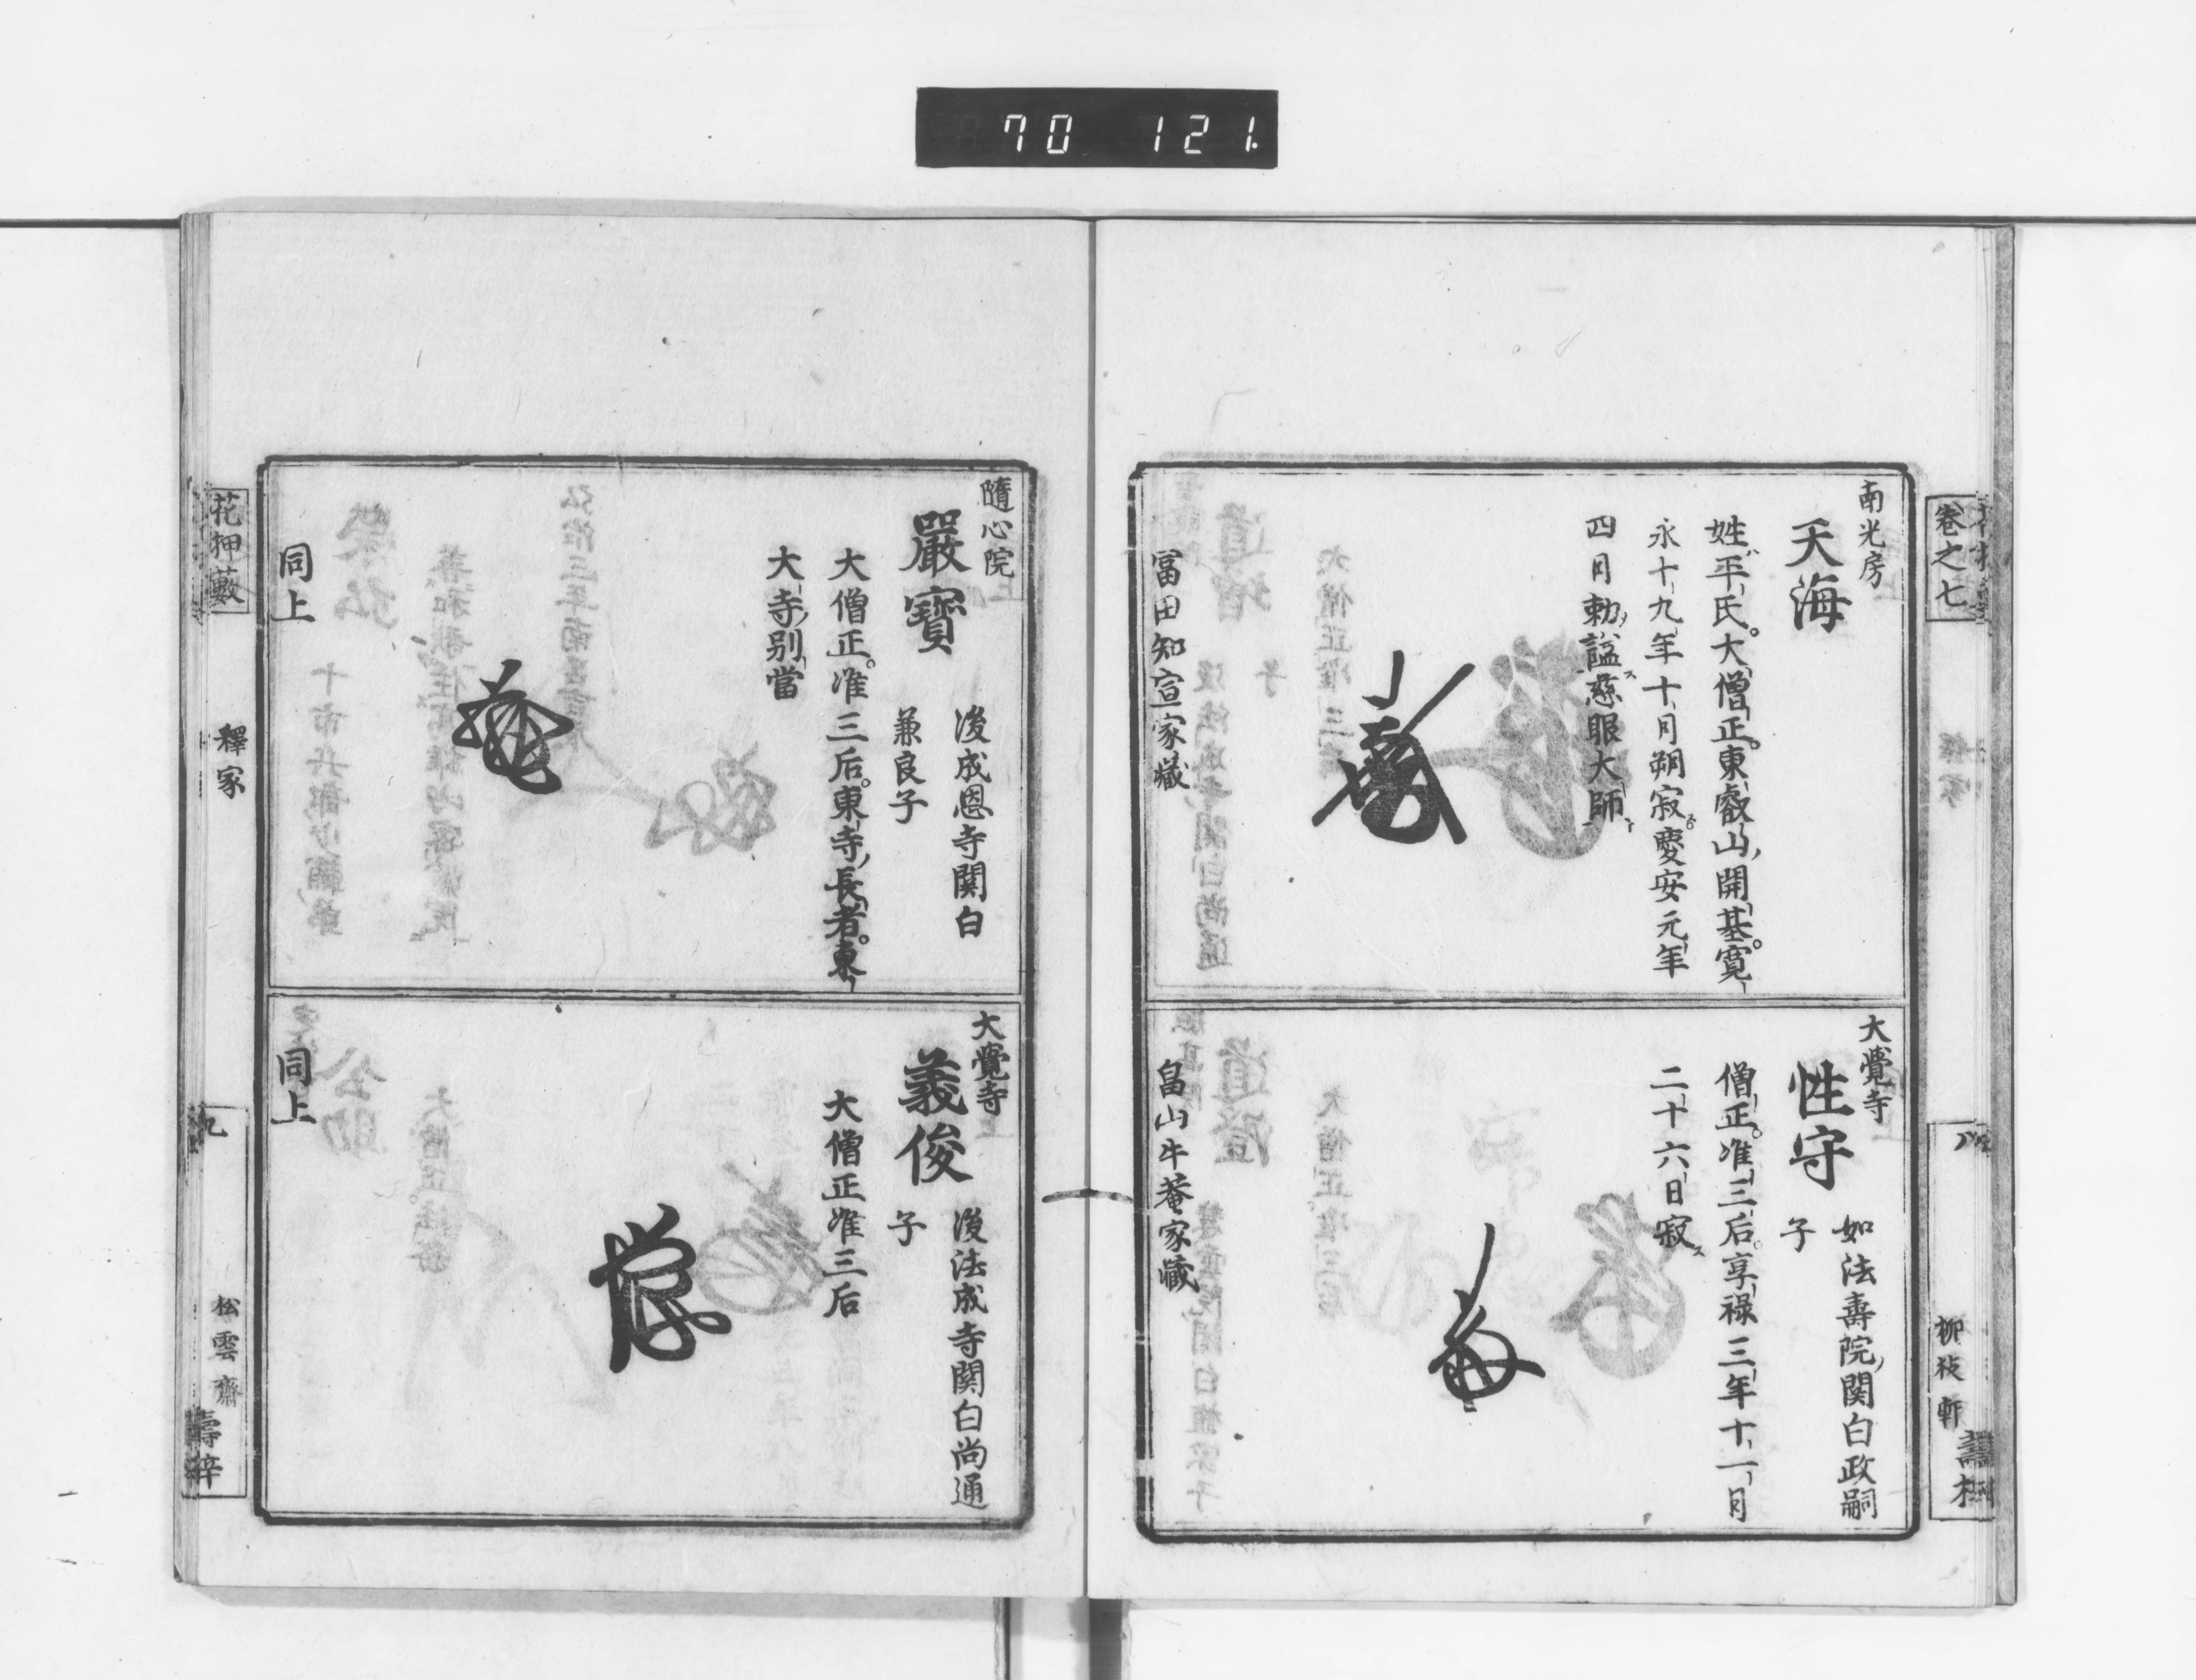 70 121.
卷之七
南光房
天海
姓ハ平氏。大僧正。東叡山ノ開基。寬
永十九年十月朔寂ス。慶安元年
四月勅ノ諡慈眼大師
冨田知宣家藏
大覺寺
性守
如法壽院ノ関白政嗣
子
僧正。准三后。享禄三年十一月
二十六日寂ス
畠山牛菴家藏
柳枝軒
隨心院
嚴寶
後成恩寺関白
兼良子
大僧正。准三后。東寺ノ長者。東
大寺ノ別當
同上
大覺寺
義俊
後法成寺関白尚通
子
大僧正准三后
同上
花押藪
釋家
九
松雲齋
壽梓